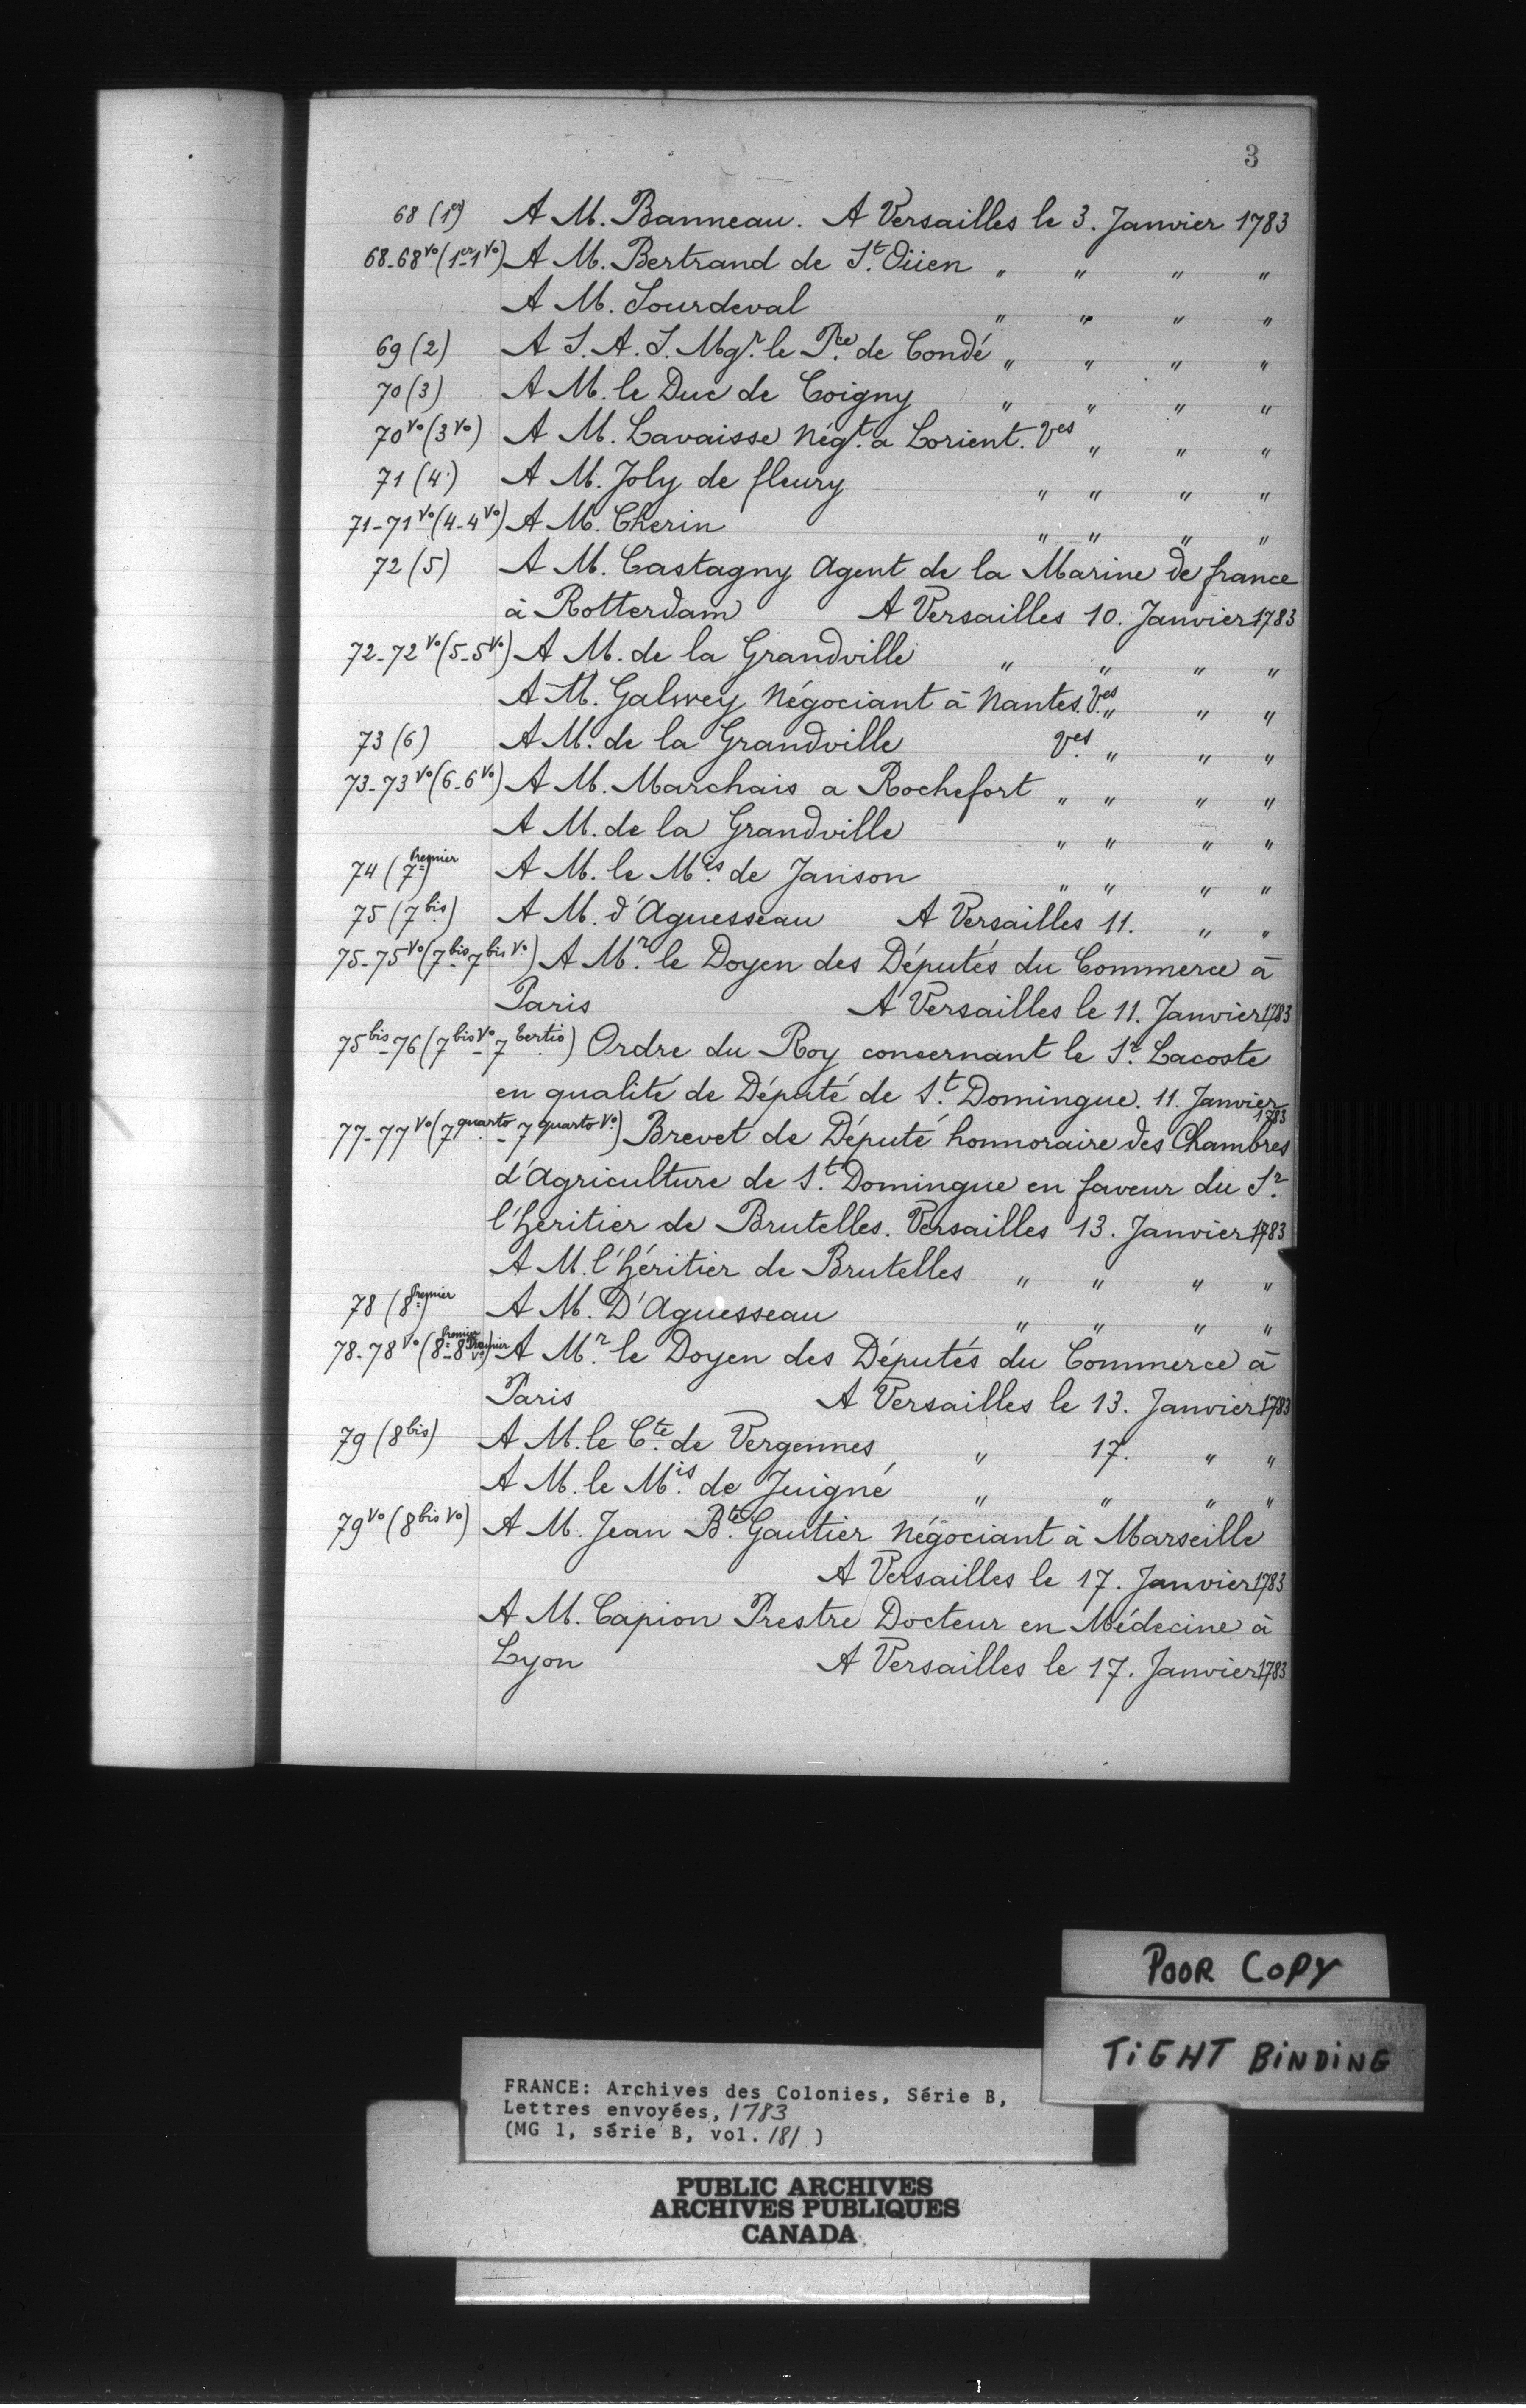 3
68 (1er) A M. Banneau. A Versailles le 3. Janvier 1783
68-68vo (1er-1vo) A M. Bertrand de St. Oüen " " " "
A M. Sourdeval " " " "
69 (2) A S. A. S. Mgr. le Pce. de Condé " " " "
70 (3) A M. le Duc de Coigny " " " "
70vo (3vo) A M. Lavaisse négt. a Lorient. Ves " " "
71 (4.) A M. Joly de fleury " " " "
71-71vo (4-4vo) A M. Cherin " " " "
72 (5) A M. Castagny Agent de la Marine de france
à Rotterdam A Versailles 10. Janvier 1783
72-72vo (5-5vo) A M. de la Grandville " " " "
A M. Galwey Négociant à Nantes. Ves. " " "
73 (6) A M. de la Grandville Ves. " " "
73-73vo (6-6vo) A M. Marchais a Rochefort " " " "
A M. de la Grandville " " " "
74 (7 premier) A M. le Mis. de Janson " " " "
75 (7 bis) A M. d'Aguesseau A Versailles 11. " "
75-75vo (7 bis-7 bis vo) A Mr. le Doyen des Députés du Commerce à
Paris A Versailles le 11. Janvier 1783
75 bis-76 (7 bis vo-7 tertio) Ordre du Roy concernant le Sr. Lacoste
en qualité de Député de St. Domingue. 11. Janvier
1783
77-77vo (7 quarto-7 quarto vo.) Brevet de Député honnoraire des Chambres
d'Agriculture de St. Domingue en faveur du Sr.
l'héritier de Brutelles. Versailles 13. Janvier 1783
A M. l'héritier de Brutelles " " " "
78 (8 premier) A M. D'Aguesseau " " " "
78-78vo (8 premier-8 premier vo) A Mr. le Doyen des Députés du Commerce à
Paris A Versailles le 13. Janvier 1783
79 (8 bis) A M. le Cte. de Vergennes " 17. " "
A M. le Mis. de Juigné " " " "
79vo (8 bis vo) A M. Jean Bte. Gautier Négociant à Marseille
A Versailles le 17. Janvier 1783
A M. Capion Prestre Docteur en Médecine à
Lyon A Versailles le 17. Janvier 1783
POOR COPY
TiGHT BiNDiNG
FRANCE: Archives des Colonies, Série B,
Lettres envoyées, 1783
(MG 1, série B, vol. 181 )
PUBLIC ARCHIVES
ARCHIVES PUBLIQUES
CANADA